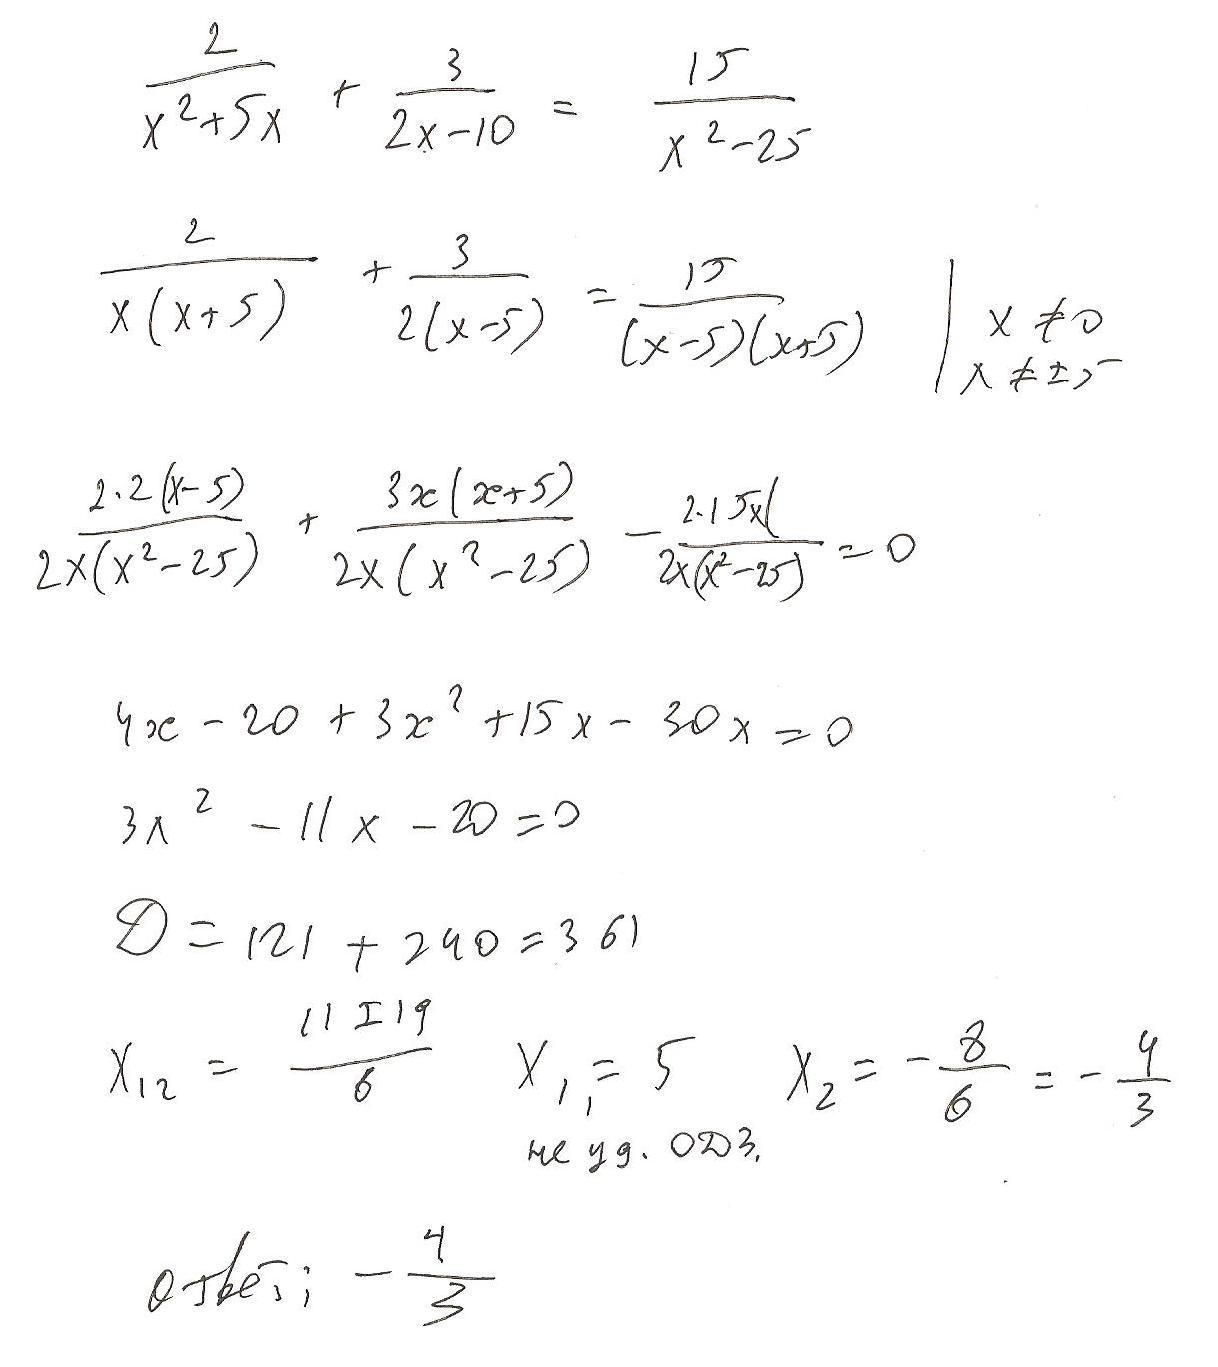 2/(x²+5x) + 3/(2x-10) = 15/(x²-25)
2/(x(x+5)) + 3/(2(x-5)) = 15/((x-5)(x+5)) | x≠0
x≠±5
2·2(x-5)/(2x(x²-25)) + 3x(x+5)/(2x(x²-25)) - 2·15x(/(2x(x²-25)) = 0
4x - 20 + 3x² + 15x - 30x = 0
3x² - 11x - 20 = 0
D = 121 + 240 = 361
x₁₂ = (11 ± 19)/6 x₁ = 5 x₂ = -8/6 = -4/3
не уд. ОДЗ.
ответ: -4/3